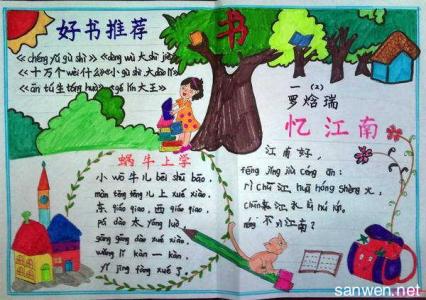 好书推荐
《chéng yǔ gù shì》《dòng wù 大 shì jiè》
《十万个 wèi 什么》《小 gù shì 大 dào lǐ》
《ān tú 生 tóng huà》《gé lín 大王》
书
一 (2)
罗焓瑞
忆江南
江南好,
fēng jǐng jiù céng ān:
日 chū 江 huā hóng shèng 火,
chūn 来江水 lǜ rú lán,
néng 不 yì 江南?
蜗牛上学
小 wō 牛儿 bēi shū bāo,
màn tēng tēng 儿上 xué xiào,
东 qiáo qiáo, 西 qiáo qiáo,
pá dào 太 yáng luò
gāng gāng dào xué xiào,
wǎng lǐ kàn 一 kàn,
yǐ jīng fàng xué 了
sanwen.net